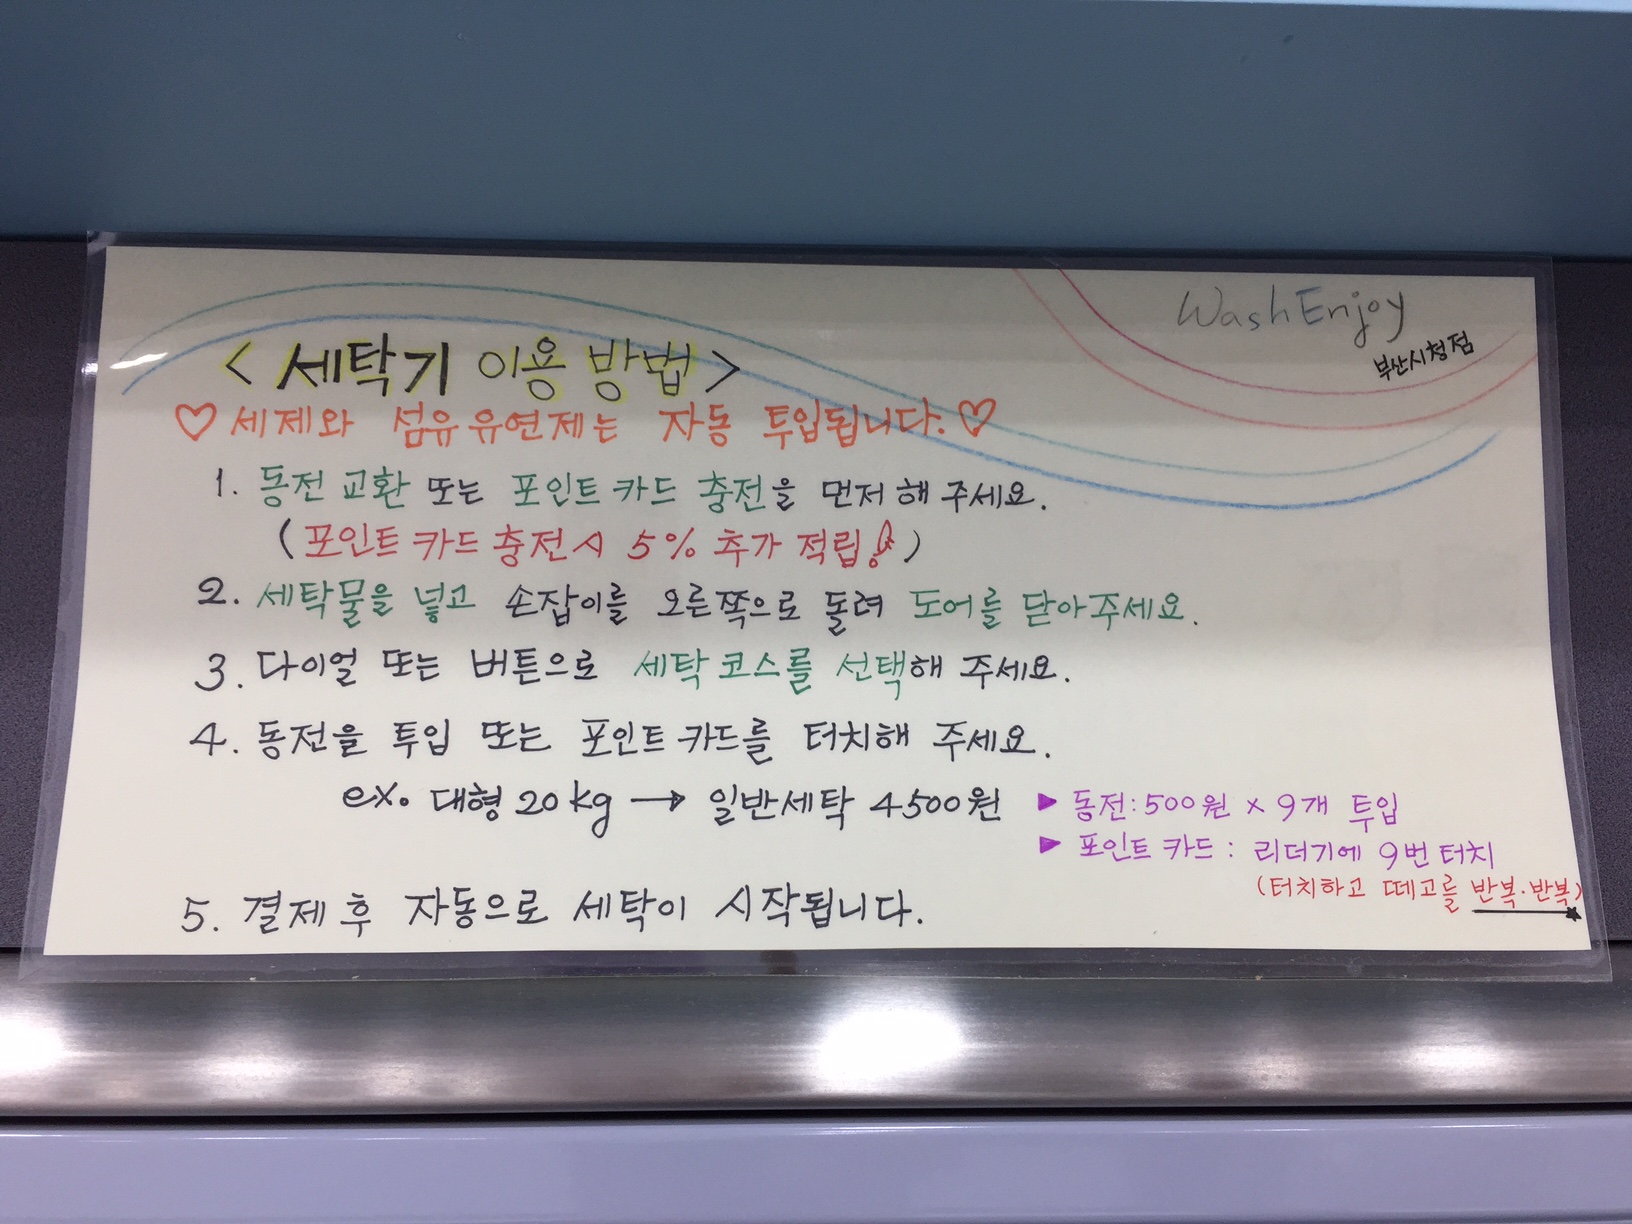 WashEnjoy
부산시청점
< 세탁기 이용 방법 >
♡ 세제와 섬유유연제는 자동 투입됩니다. ♡
1. 동전 교환 또는 포인트 카드 충전을 먼저 해 주세요.
(포인트 카드 충전시 5% 추가 적립!)
2. 세탁물을 넣고 손잡이를 오른쪽으로 돌려 도어를 닫아주세요.
3. 다이얼 또는 버튼으로 세탁 코스를 선택해 주세요.
4. 동전을 투입 또는 포인트 카드를 터치해 주세요.
ex. 대형 20kg → 일반세탁 4500원 ▶ 동전: 500원 x 9개 투입
▶ 포인트 카드 : 리더기에 9번 터치
(터치하고 떼고를 반복·반복)
5. 결제 후 자동으로 세탁이 시작됩니다.